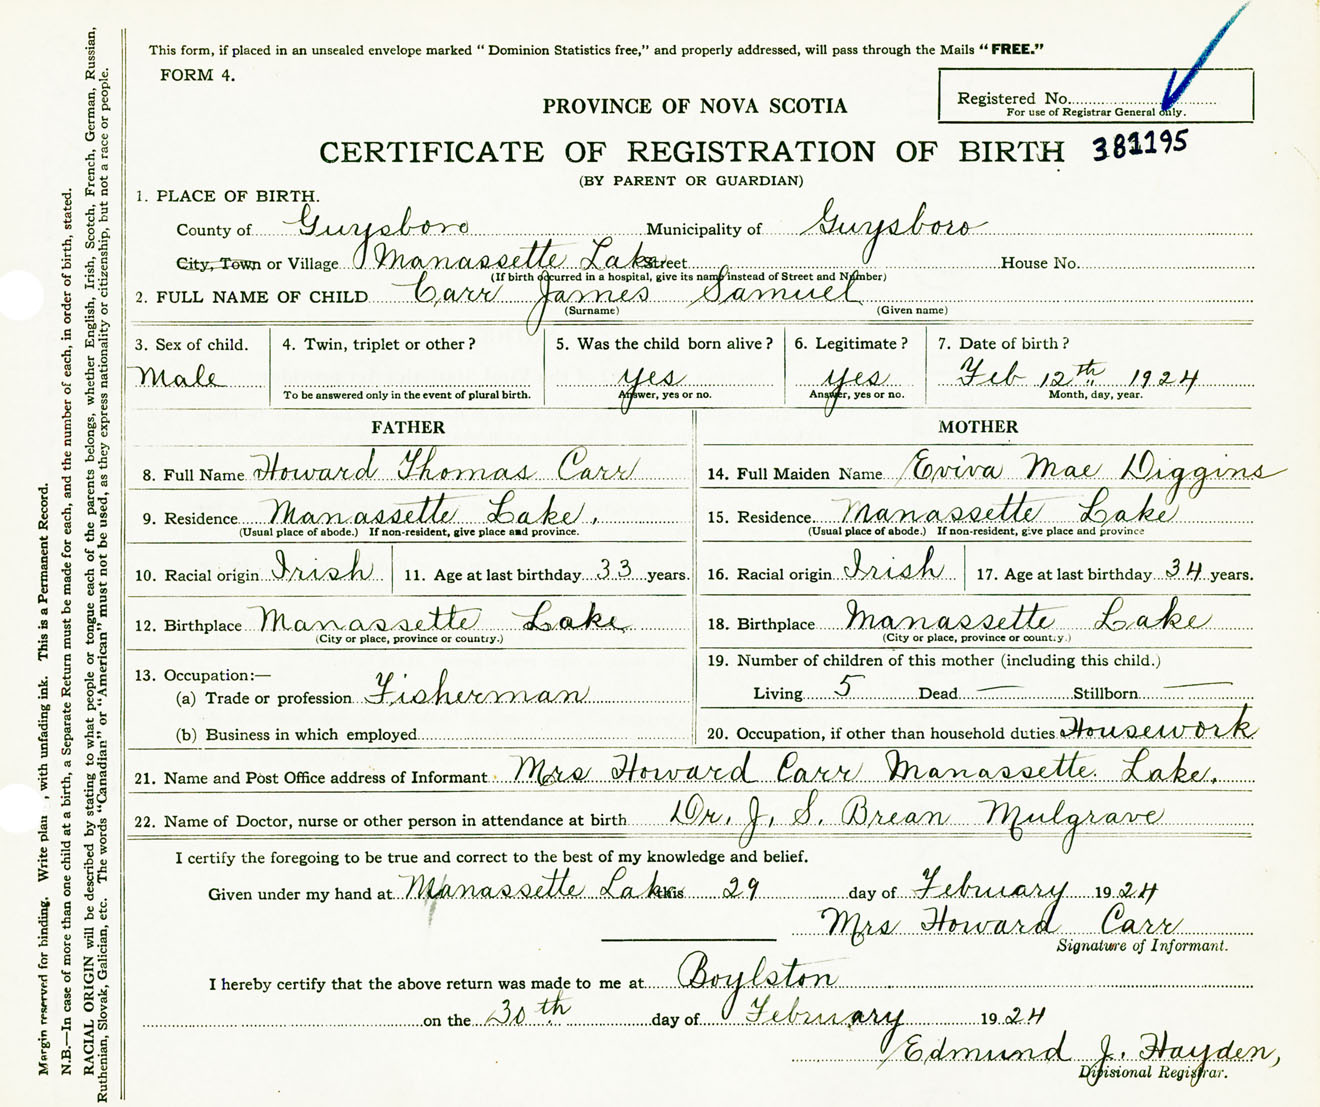 This form, if placed in an unsealed envelope marked " Dominion Statistics free," and properly addressed, will pass through the Mails " FREE."
FORM 4.
Registered No.
For use of Registrar General only.
PROVINCE OF NOVA SCOTIA
CERTIFICATE OF REGISTRATION OF BIRTH 381195
(BY PARENT OR GUARDIAN)
1. PLACE OF BIRTH.
County of Guysboro Municipality of Guysboro
City, Town or Village Manassette Lake Street House No.
(If birth occurred in a hospital, give its name instead of Street and Number)
2. FULL NAME OF CHILD Carr James Samuel
(Surname) (Given name)
3. Sex of child. 4. Twin, triplet or other ? 5. Was the child born alive ? 6. Legitimate ? 7. Date of birth ?
Male yes yes Feb 12th 1924
To be answered only in the event of plural birth. Answer, yes or no. Answer, yes or no. Month, day, year.
FATHER MOTHER
8. Full Name Howard Thomas Carr 14. Full Maiden Name Eviva Mae Diggins
9. Residence Manassette Lake. 15. Residence Manassette Lake
(Usual place of abode.) If non-resident, give place and province. (Usual place of abode.) If non-resident, give place and province
10. Racial origin Irish 11. Age at last birthday 33 years. 16. Racial origin Irish 17. Age at last birthday 34 years.
12. Birthplace Manassette Lake 18. Birthplace Manassette Lake
(City or place, province or country.) (City or place, province or country.)
13. Occupation:— 19. Number of children of this mother (including this child.)
(a) Trade or profession Fisherman Living 5 Dead — Stillborn —
(b) Business in which employed 20. Occupation, if other than household duties Housework
21. Name and Post Office address of Informant Mrs Howard Carr Manassette. Lake.
22. Name of Doctor, nurse or other person in attendance at birth Dr. J. S. Brean Mulgrave
I certify the foregoing to be true and correct to the best of my knowledge and belief.
Given under my hand at Manassette Lake this 29 day of February 1924
Mrs Howard Carr
Signature of Informant.
I hereby certify that the above return was made to me at Boylston
on the 30th day of February 1924
Edmund J. Hayden,
Divisional Registrar.
Margin reserved for binding. Write plain , with unfading ink. This is a Permanent Record.
N.B.—In case of more than one child at a birth, a Separate Return must be made for each, and the number of each, in order of birth, stated.
RACIAL ORIGIN will be described by stating to what people or tongue each of the parents belongs, whether English, Irish, Scotch, French, German, Russian,
Ruthenian, Slovak, Galician, etc. The words "Canadian" or "American" must not be used, as they express nationality or citizenship, but not a race or people.